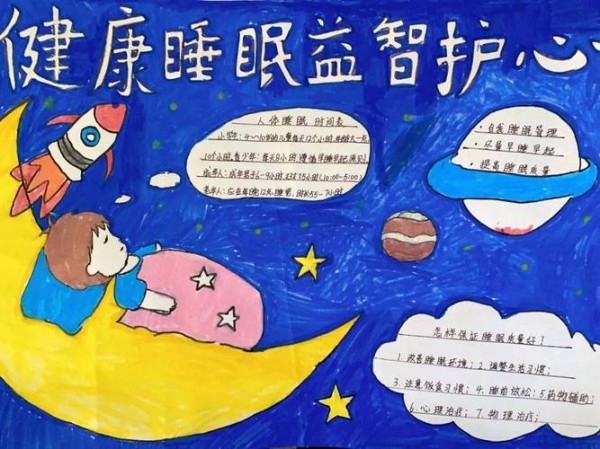 健康睡眠益智护心
人体睡眠时间表
小学生:4～10岁的儿童每天12个小时,年龄大一点
10个小时,青少年:每天8小时,
成年男子6～9小时,
老年人:应在每晚12点睡觉,
自我睡眠管理
尽量早睡早起
提高睡眠质量
怎样保证睡眠质量好?
1.改善睡眠环境;2.调整生活习惯;
3.注意饮食习惯;4.睡前放松:5药物辅助;
6.心理治疗;7.物理治疗;